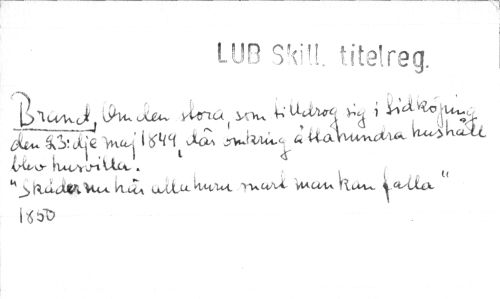 LUB Skill. titelreg.
Brand, Om den stora, som tilldrog sig i Lidköping
den 23:dje maj 1849, där omkring åttahundra hushåll
blev husvilla.
"Skåder nu här alla huru snart man kan falla"
1850